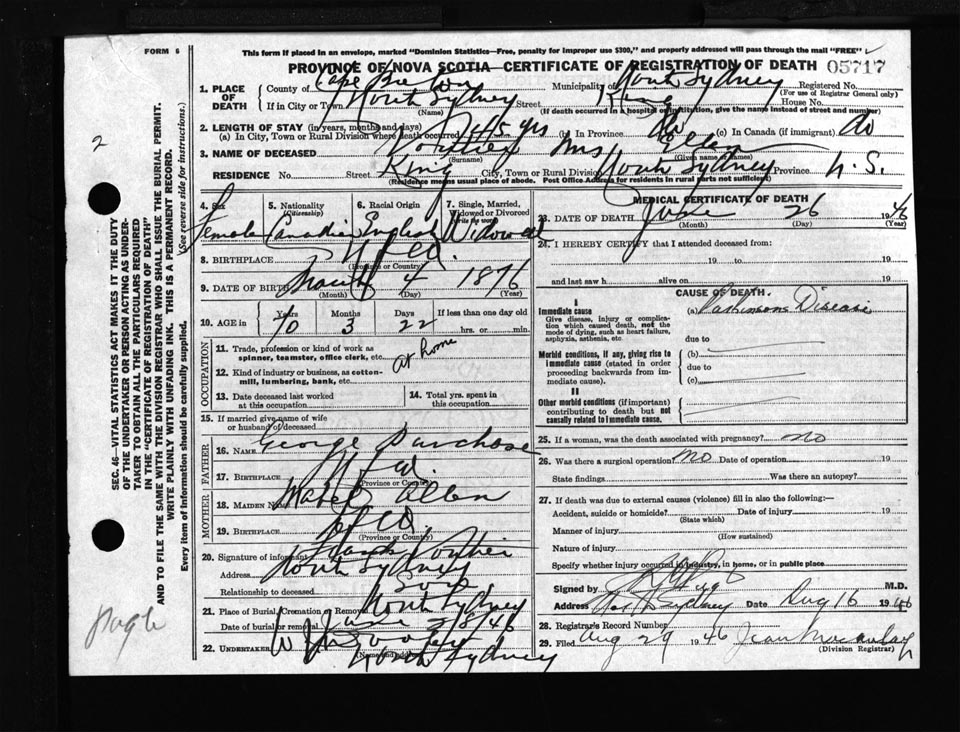 FORM 6
This form if placed in an envelope, marked "Dominion Statistics—Free, penalty for improper use $300," and properly addressed will pass through the mail "FREE"
PROVINCE OF NOVA SCOTIA—CERTIFICATE OF REGISTRATION OF DEATH 05717
1. PLACE OF DEATH
County of Cape Breton Municipality of North Sydney Registered No.
(For use of Registrar General only)
If in City or Town North Sydney Street King House No.
(Name) (If death occurred in a hospital or institution, give the name instead of street and number)
2. LENGTH OF STAY (in years, months and days)
(a) In City, Town or Rural Division where death occurred 45 yrs (b) In Province do (c) In Canada (if immigrant) do
3. NAME OF DECEASED Mrs
(Surname) (Given name or names)
RESIDENCE No. Street King City, Town or Rural Division North Sydney Province N.S.
(Residence means usual place of abode. Post Office Address for residents in rural parts not sufficient)
4. Sex Female
5. Nationality (Citizenship) Canadian
6. Racial Origin English
7. Single, Married, Widowed or Divorced
Write the word
Widowed
8. BIRTHPLACE Nfld.
(Province or Country)
9. DATE OF BIRTH March 4 1876
(Month) (Day) (Year)
10. AGE in Years Months Days If less than one day old
70 3 22 hrs. or min.
OCCUPATION
11. Trade, profession or kind of work as spinner, teamster, office clerk, etc. at home
12. Kind of industry or business, as cotton-mill, lumbering, bank, etc.
13. Date deceased last worked at this occupation
14. Total yrs. spent in this occupation
15. If married give name of wife or husband of deceased
FATHER
16. NAME George Purchase
17. BIRTHPLACE Nfld.
(Province or Country)
MOTHER
18. MAIDEN NAME Mabel Allen
19. BIRTHPLACE Nfld.
(Province or Country)
20. Signature of informant Frank
Address North Sydney
Relationship to deceased Son
21. Place of Burial, Cremation or Removal North Sydney
Date of burial or removal June 28/46
22. UNDERTAKER
(Name and address)
North Sydney
MEDICAL CERTIFICATE OF DEATH
23. DATE OF DEATH June 26 1946
(Month) (Day) (Year)
24. I HEREBY CERTIFY that I attended deceased from:
19 to 19
and last saw h alive on 19
CAUSE OF DEATH
I
Immediate cause (a) Parkinsons Disease
Give disease, injury or complication which caused death, not the mode of dying, such as heart failure, asphyxia, asthenia, etc.
due to
Morbid conditions, if any, giving rise to immediate cause (stated in order proceeding backwards from immediate cause).
(b)
due to
(c)
II
Other morbid conditions (if important) contributing to death but not causally related to immediate cause.
25. If a woman, was the death associated with pregnancy? no
26. Was there a surgical operation? no Date of operation 19
State findings Was there an autopsy?
27. If death was due to external causes (violence) fill in also the following:—
Accident, suicide or homicide? Date of injury 19
(State which)
Manner of injury
(How sustained)
Nature of injury
Specify whether injury occurred in industry, in home, or in public place
Signed by M.D.
Address North Sydney Date Aug 16 1946
28. Registrar's Record Number
29. Filed Aug 29 1946 Jean
(Division Registrar)
2
SEC. 46—VITAL STATISTICS ACT MAKES IT THE DUTY
OF THE UNDERTAKER OR PERSON ACTING AS UNDER-
TAKER TO OBTAIN ALL THE PARTICULARS REQUIRED
IN THE "CERTIFICATE OF REGISTRATION OF DEATH"
AND TO FILE THE SAME WITH THE DIVISION REGISTRAR WHO SHALL ISSUE THE BURIAL PERMIT.
WRITE PLAINLY WITH UNFADING INK. THIS IS A PERMANENT RECORD.
Every item of information should be carefully supplied. (See reverse side for instructions.)